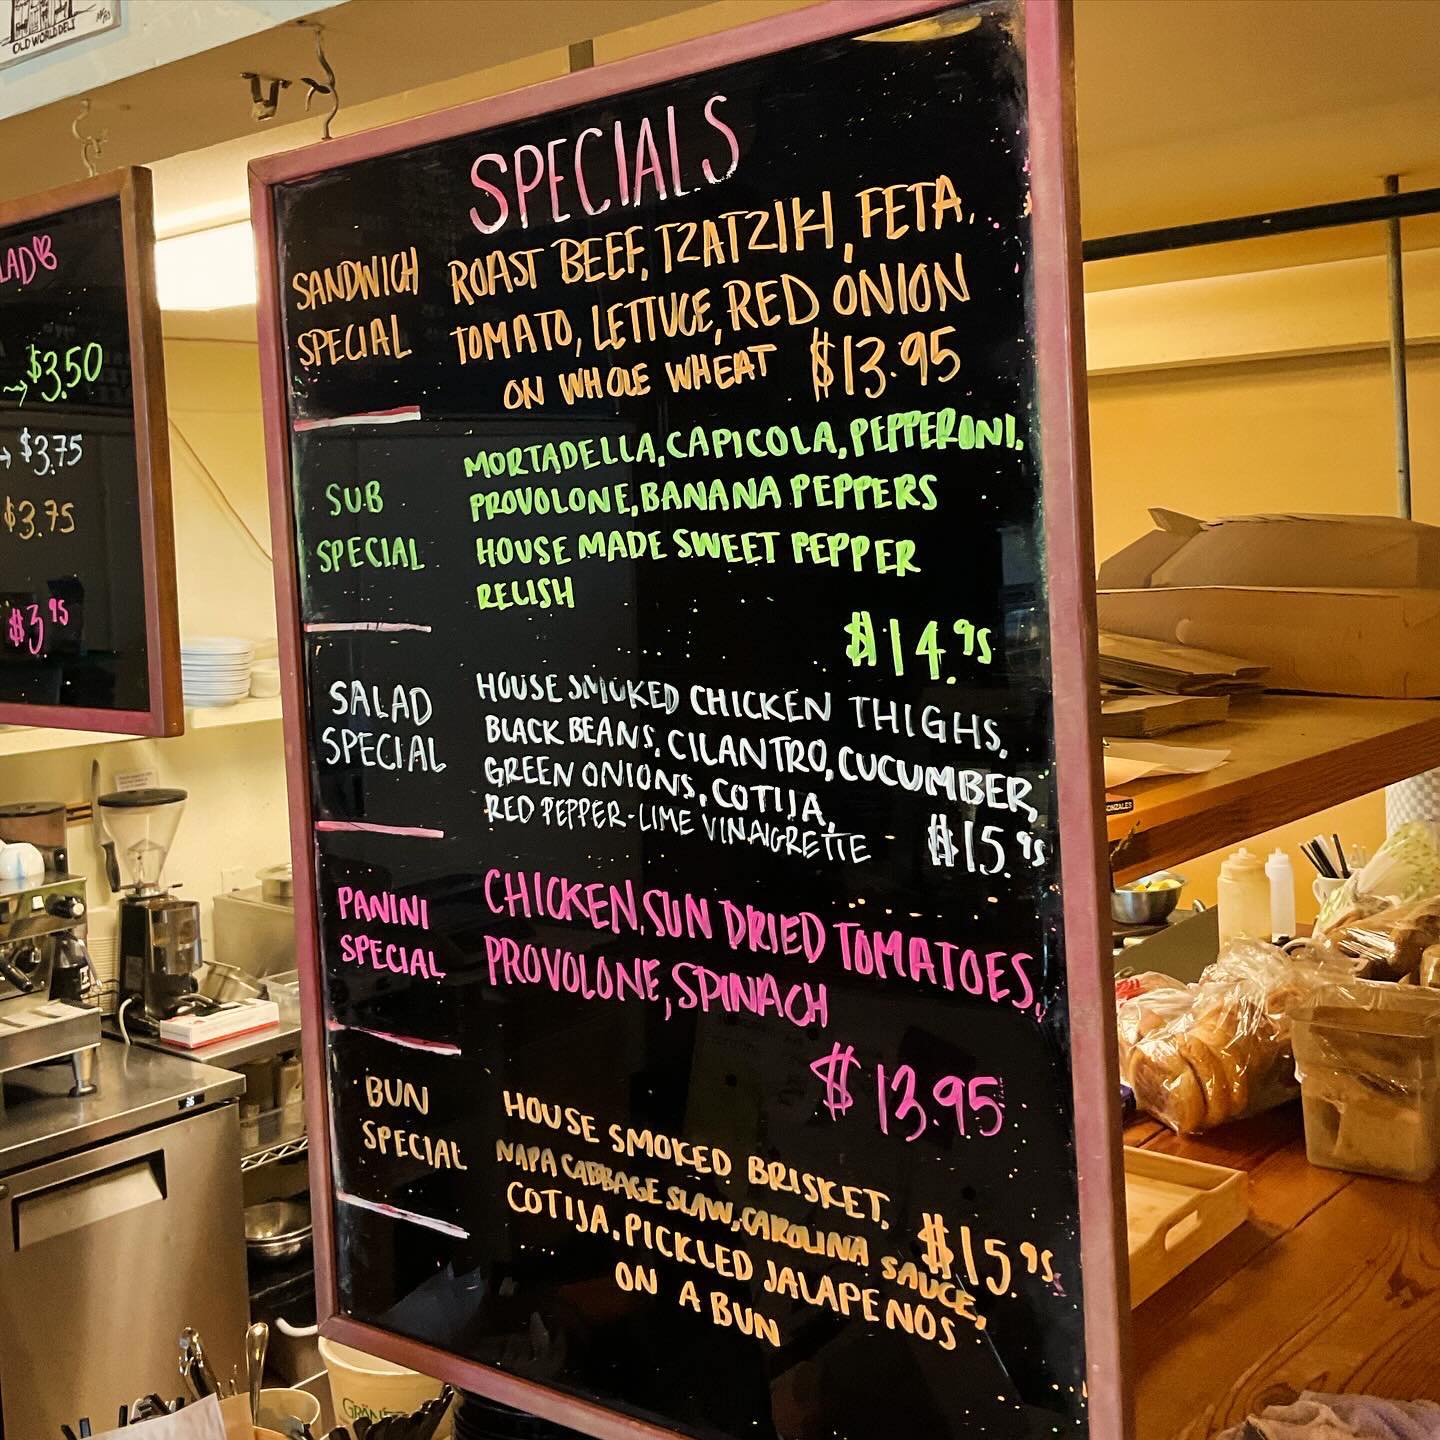 OLD WORLD DELI
LAD
$3.50
$3.75
$3.75
$3.95
SPECIALS
SANDWICH
SPECIAL
ROAST BEEF, TZATZIKI, FETA,
TOMATO, LETTUCE, RED ONION
ON WHOLE WHEAT $13.95
SUB
SPECIAL
MORTADELLA, CAPICOLA, PEPPERONI,
PROVOLONE, BANANA PEPPERS
HOUSE MADE SWEET PEPPER
RELISH
$14.95
SALAD
SPECIAL
HOUSE SMOKED CHICKEN THIGHS,
BLACK BEANS, CILANTRO, CUCUMBER,
GREEN ONIONS, COTIJA,
RED PEPPER-LIME VINAIGRETTE $15.95
PANINI
SPECIAL
CHICKEN, SUN DRIED TOMATOES,
PROVOLONE, SPINACH
$13.95
BUN
SPECIAL
HOUSE SMOKED BRISKET,
NAPA CABBAGE SLAW, CAROLINA SAUCE,
COTIJA, PICKLED JALAPENOS
ON A BUN
$15.95